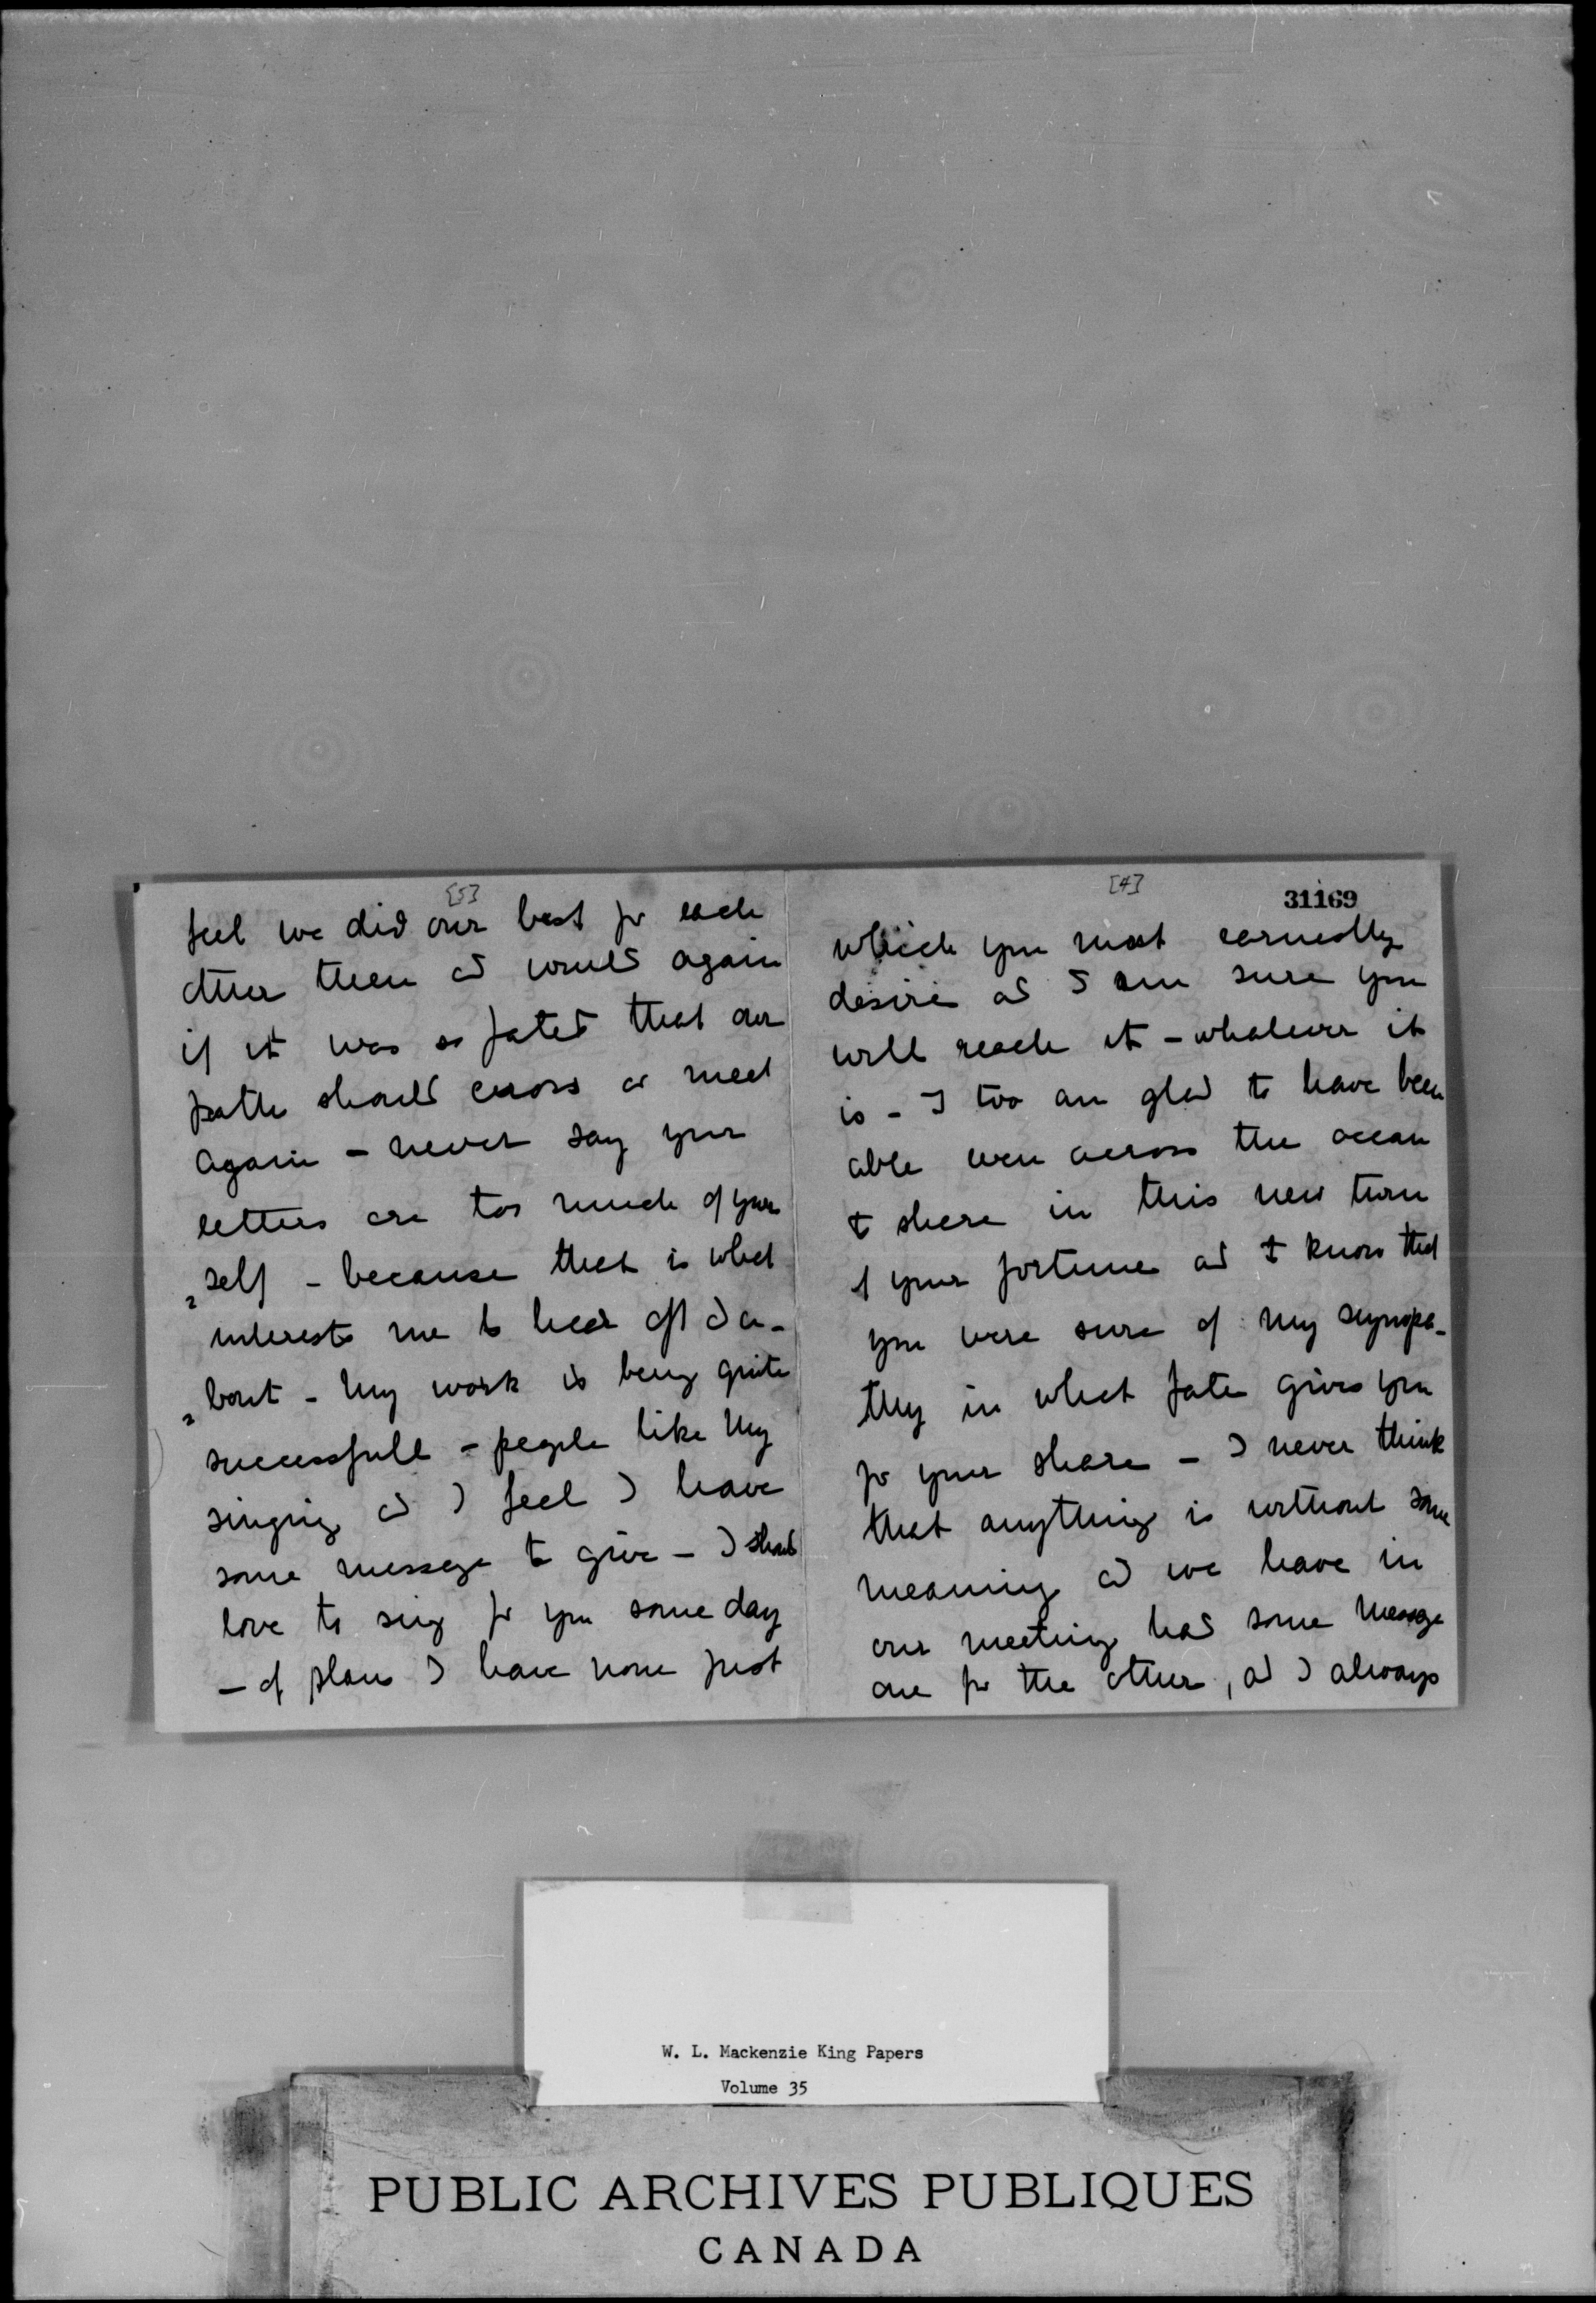 [5]
feel we did our best for each
other then and would again
if it was so fated that our
paths should cross or meet
again - never say your
letters are too much of your
self - because that is what
interests me to hear of and a-
bout - My work is being quite
successfull - people like my
singing and I feel I have
some message to give - I should
love to sing for you some day
- of plans I have none just
[4]
31169
which you most earnestly
desire and I am sure you
will reach it - whatever it
is - I too am glad to have been
able even across the ocean
to share in this new turn
of your fortune and I know that
you were sure of my sympa-
thy in what fate gives you
for your share - I never think
that anything is without some
meaning and we have in
our meeting had some message
one for the other, and I always
W. L. Mackenzie King Papers
Volume 35
PUBLIC ARCHIVES PUBLIQUES
CANADA